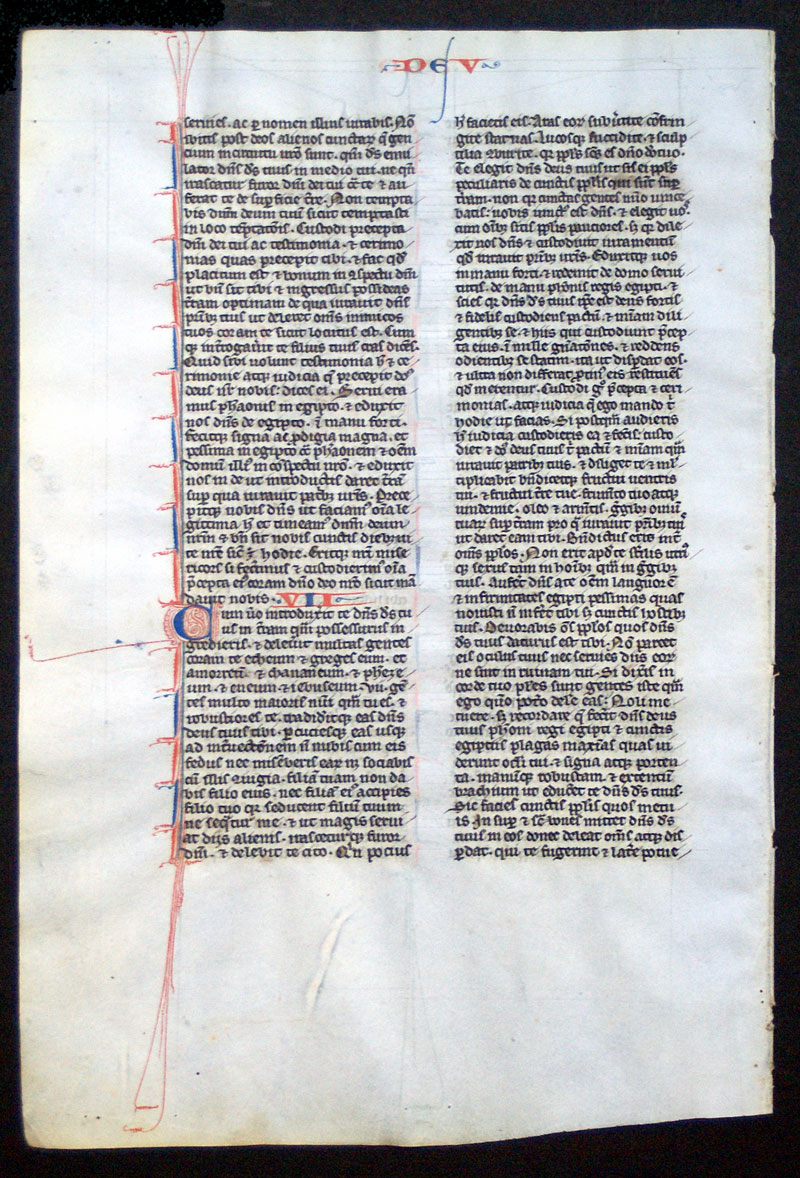 DEV
seruies. ac p nomen illius iurabis. Nō
ibitis post deos alienos cunctarz gen
cium in circuitu uro sunt. qm ds emu
lator dns ds tuus in medio tui. ne qn
irascatur furor dni dei tui cte & au
ferat te de supficie tre. Non tempta
bis dnm deum tuum sicut temptasti
in loco temptatonis. Custodi precepta
dni dei tui ac testimonia. & cerimo
nias quas precepit tibi. & fac qd
placitum est & bonum in conspectu dni
ut bn sit tibi & ingressus possideas
tram optimam de qua iurauit dns
prib; tuis ut deleret oms inimicos
tuos coram te sicut locutus est. Cum
q; introgauit te filius tuus cras dices.
Quid sibi uolunt testimonia h & ce
rimonie atq; iudicia q precepit dns
deus nr nobis. dices ei. Serui era
mus pharaonis in egipto. & eduxit
nos dns de egipto. i manu forti.
fecitq; signa ac pdigia magna. et
pessima in egipto ct pharaonem & oem
domum illis in conspectu nro. & eduxit
nos inde ut introductis daret tram
sup qua iurauit patrib; nris. Prece
pitq; nobis dns ut faciam oia le
gittima h et timeam dnm deum
nrm & bn sit nobis cunctis dieb; ui
te nre sic & hodie. Eritq; nri mise
ricors si fecimus & custodierim oia
pcepta ei coram dno deo nro sicut man
dauit nobis. VII
Cum uo introduxit te dns ds tu
us in tram qm possessurus in
gredieris. & deleuit multas gentes
coram te etheum & gergeseum. et
amorreum. & chananeum. & phereze
um. & eueum & iebuseum. vii. gen
tes multo maioris nui qm tu es. &
robustiores te. tradiditq; eas dns
deus tuus tibi. percucies eas usq;
ad internectionem. n inibis cum eis
fedus nec misereberis earz n sociabis
cū illis ziugia. filiā tuam non da
bis filio eius. nec filiā ei accipies
filio tuo qr seducent filiū tuum
ne seqtur me. & ut magis serui
at diis alienis. irasceturq; furor
dni. & delebit te cito. Qn pocius
h facietis eis. Aras eor subuertite cōfrin
gite statuas. lucosq; succidite. & sculp
tilia zburite. qr ppls scs es dno do tuo.
Te elegit dns deus tuus ut sis ei ppls
peculiaris de cunctis pplis qui sunt sup
tram. non qr cunctas gentes nuo uince
batis. uobis iunct est dns. & elegit uos.
cum omib; sitis pplis pauciores. s; qr dile
xit uos dns & custodiuit iuramentū
qd iurauit prib; uris. Eduxitq; uos
in manu forti. & redemit de domo serui
tutis. de manu pharaonis regis egipti. &
scies qr dns ds tuus ipe est deus fortis
& fidelis custodiens pactū. & miam dili
gentib; se. & hiis qui custodiunt pcep
ta eius. i mille gnatones. & reddens
odientib; se statim. ita ut dispdat eos.
& ultra non differat. ptinus eis restituens
qd merentur. Custodi g pcepta & ceri
monias. atq; iudicia q ego mando t
hodie ut facias. Si postqm audieris
h iudicia custodieris ea & feceris. custo
diet & ds deus tuus t pactū & miam qm
iurauit patrib; tuis. & diliget te & ml
tiplicabit bndicetq; fructui uentris
tui. & fructui tre tue. frumto tuo atq;
uindemie. oleo & armentis. gregib; ouiū
tuar sup tram pro q iurauit prib; tuis
ut daret eam tibi. Bndictus eris int
oms pplos. Non erit aput te sterilis utri
q; sexus tam in hoib; qm in gregib;
tuis. Auferet dns a te oem languorē
& infirmitates egipti pessimas quas
nouisti n inferet tibi s; cunctis hostib;
tuis. Deuorabis oms pplos quos dns
ds tuus daturus est tibi. Nō parcet
eis oculus tuus nec seruies diis eor
ne sint in ruinam tui. Si dixis in
corde tuo plures sunt gentes iste qm
ego quo poto delere eas. Noli me
tuere. s; recordare q fecit dns deus
tuus pharaoni regi egipti & cunctis
egiptiis plagas maximas quas ui
derunt oculi tui. & signa atq; porten
ta. manūq; robustam. & extentū
brachium ut educeret te dns ds tuus.
Sic faciet cunctis pplis quos metu
is. In sup & scabrones mittet dns ds
tuus in eos donec deleat oms atq; dis
pdat. qui te fugerint & latere potue